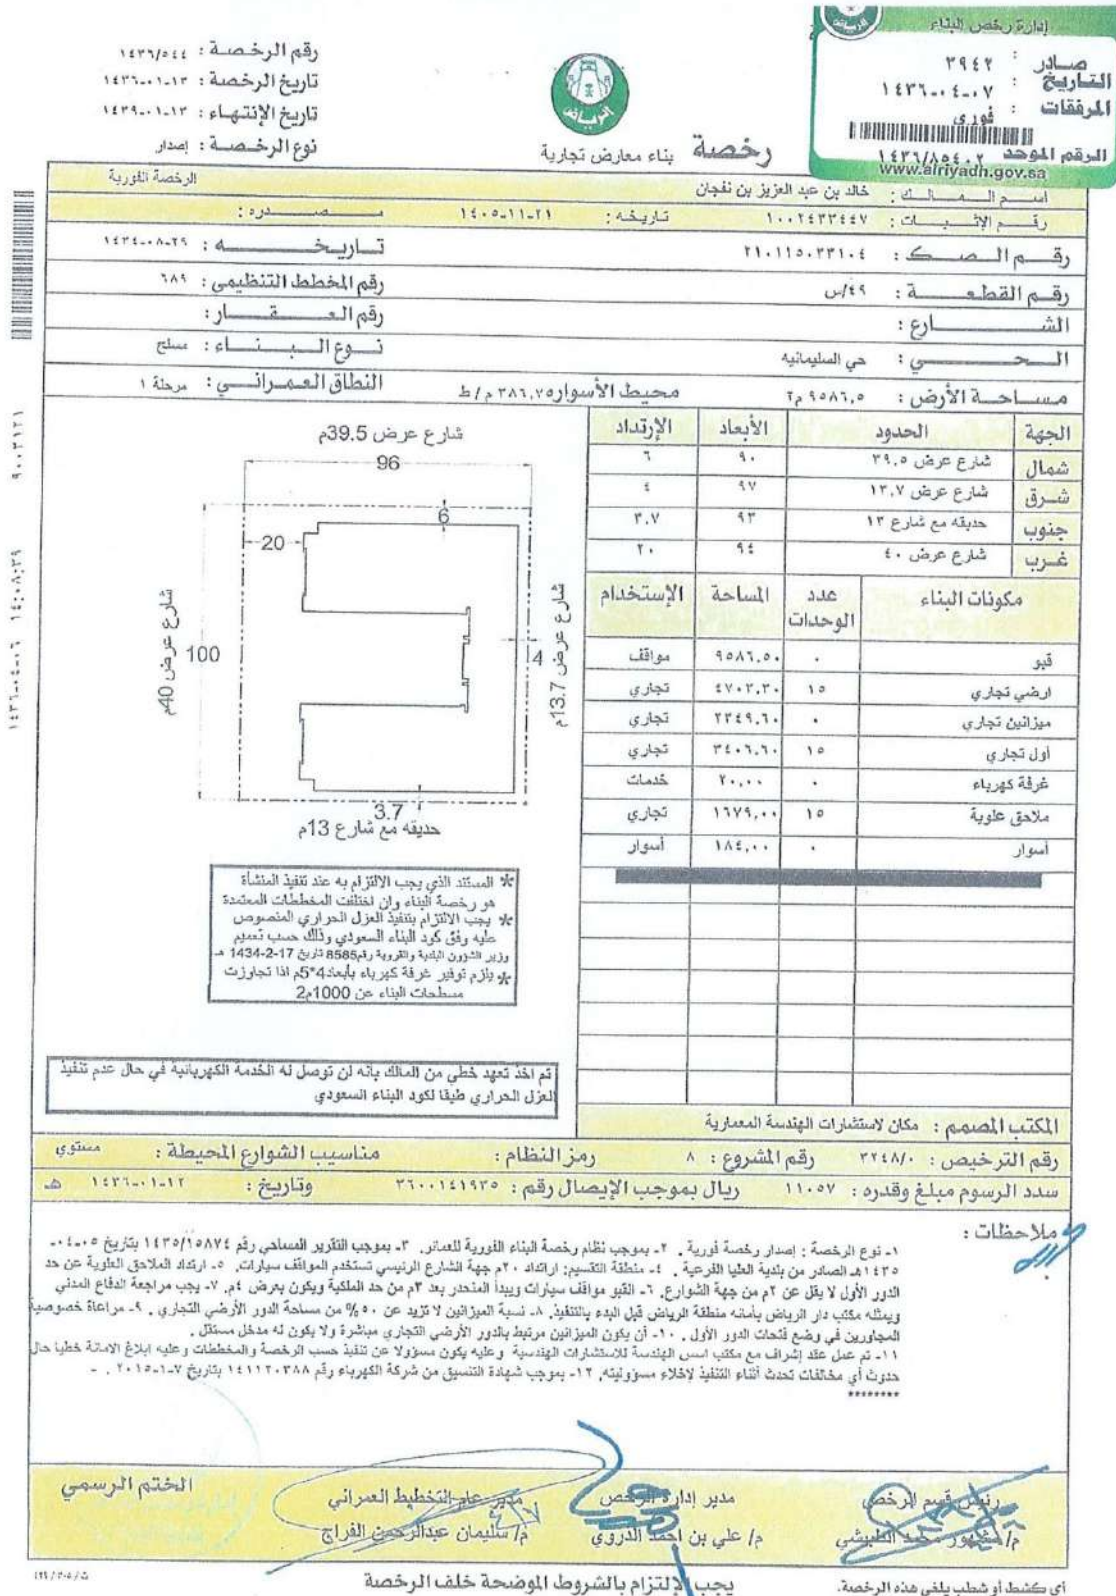 إدارة رخص البناء
صادر : ٣٩٤٢
التاريخ : ١٤٣٦-٠٤-٠٧
المرفقات : فوري
الرقم الموحد ١٤٣٦/٨٥٤٠٢
www.alriyadh.gov.sa
رقم الرخصة : ١٤٣٦/٥٤٤
تاريخ الرخصة : ١٤٣٦-٠١-١٣
تاريخ الإنتهاء : ١٤٣٩-٠١-١٣
نوع الرخصة : إصدار
الرياض
رخصة بناء معارض تجارية
اسم المالك : خالد بن عبد العزيز بن نفجان الرخصة الفورية
رقم الإثبات : ١٠٠٢٤٣٣٤٤٧ تاريخه : ١٤٠٥-١١-٢١ مصدره :
رقم الصك : ٢١٠١١٥٠٣٣١٠٤ تاريخه : ١٤٣٤-٠٨-٢٩
رقم القطعة : ٤٩/س رقم المخطط التنظيمي : ٦٨٩
الشارع : رقم العقار :
الحي : حي السليمانيه نوع البناء : مسلح
مساحة الأرض : ٩٥٨٦,٥ م٢ محيط الأسوار ٣٨٦,٧٥ م / ط النطاق العمراني : مرحلة ١
الجهة الحدود الأبعاد الإرتداد
شمال شارع عرض ٣٩.٥ ٩٠ ٦
شرق شارع عرض ١٣.٧ ٩٧ ٤
جنوب حديقه مع شارع ١٣ ٩٣ ٣.٧
غرب شارع عرض ٤٠ ٩٤ ٢٠
مكونات البناء عدد الوحدات المساحة الإستخدام
قبو ٠ ٩٥٨٦,٥٠ مواقف
ارضي تجاري ١٥ ٤٧٠٣,٣٠ تجاري
ميزانين تجاري ٠ ٢٣٤٩,٦٠ تجاري
أول تجاري ١٥ ٣٤٠٦,٦٠ تجاري
غرفة كهرباء ٠ ٢٠,٠٠ خدمات
ملاحق علوية ١٥ ١٦٧٩,٠٠ تجاري
أسوار ٠ ١٨٤,٠٠ أسوار
شارع عرض 39.5م
96
6
20
شارع عرض 40م
100
4
شارع عرض 13.7م
3.7
حديقه مع شارع 13م
* المستند الذي يجب الالتزام به عند تنفيذ المنشأة
هو رخصة البناء وان اختلفت المخططات المعتمدة
* يجب الالتزام بتنفيذ العزل الحراري المنصوص
عليه وفق كود البناء السعودي وذلك حسب تعميم
وزير الشؤون البلدية والقروية رقم8585 تاريخ 17-2-1434 هـ
* يلزم توفير غرفة كهرباء بأبعاد4*5م اذا تجاوزت
مسطحات البناء عن 1000م2
تم اخذ تعهد خطي من المالك بانه لن توصل له الخدمة الكهربائية في حال عدم تنفيذ
العزل الحراري طبقا لكود البناء السعودي
المكتب المصمم : مكان لاستشارات الهندسة المعمارية
رقم الترخيص : ٣٢٤٨/٠ رقم المشروع : ٨ رمز النظام : مناسيب الشوارع المحيطة : مستوي
سدد الرسوم مبلغ وقدره : ١١٠٥٧ ريال بموجب الإيصال رقم : ٣٦٠٠١٤١٩٣٥ وتاريخ : ١٤٣٦-٠١-١٢ هـ
ملاحظات :
١- نوع الرخصة : إصدار رخصة فورية . ٢- بموجب نظام رخصة البناء الفورية للعمائر. ٣- بموجب التقرير المساحي رقم ١٤٣٥/١٥٨٧٤ بتاريخ ٠٥-٠٤-
١٤٣٥هـ الصادر من بلدية العليا الفرعية . ٤- منطقة التقسيم: ارتداد ٢٠م جهة الشارع الرئيسي تستخدم المواقف سيارات. ٥- ارتداد الملاحق العلوية عن حد
الدور الأول لا يقل عن ٢م من جهة الشوارع. ٦- القبو مواقف سيارات ويبدأ المنحدر بعد ٣م من حد الملكية ويكون بعرض ٤م. ٧- يجب مراجعة الدفاع المدني
ويمثله مكتب دار الرياض بأمانه منطقة الرياض قبل البدء بالتنفيذ. ٨- نسبة الميزانين لا تزيد عن ٥٠% من مساحة الدور الأرضي التجاري . ٩- مراعاة خصوصية
المجاورين في وضع فتحات الدور الأول . ١٠- أن يكون الميزانين مرتبط بالدور الأرضي التجاري مباشرة ولا يكون له مدخل مستقل .
١١- تم عمل عقد إشراف مع مكتب اسس الهندسة للاستشارات الهندسية وعليه يكون مسؤولا عن تنفيذ حسب الرخصة والمخططات وعليه ابلاغ الامانة خطيا حال
حدوث أي مخالفات تحدث أثناء التنفيذ لإخلاء مسؤوليته. ١٢- بموجب شهادة التنسيق من شركة الكهرباء رقم ١٤١١٢٠٣٨٨ بتاريخ ٧-١-٢٠١٥ . -
********
رئيس قسم الرخص مدير إدارة الرخص مدير عام التخطيط العمراني الختم الرسمي
م/ مشهور محمد الطبيشي م/ علي بن احمد الدروي م/ سليمان عبدالرحمن الفراج
أي كشط أو شطب يلغي هذه الرخصة. يجب الإلتزام بالشروط الموضحة خلف الرخصة
٩٠٠٣١٢١ ١٤:٠٨:٢٩ ١٤٣٦-٠٤-٠٦